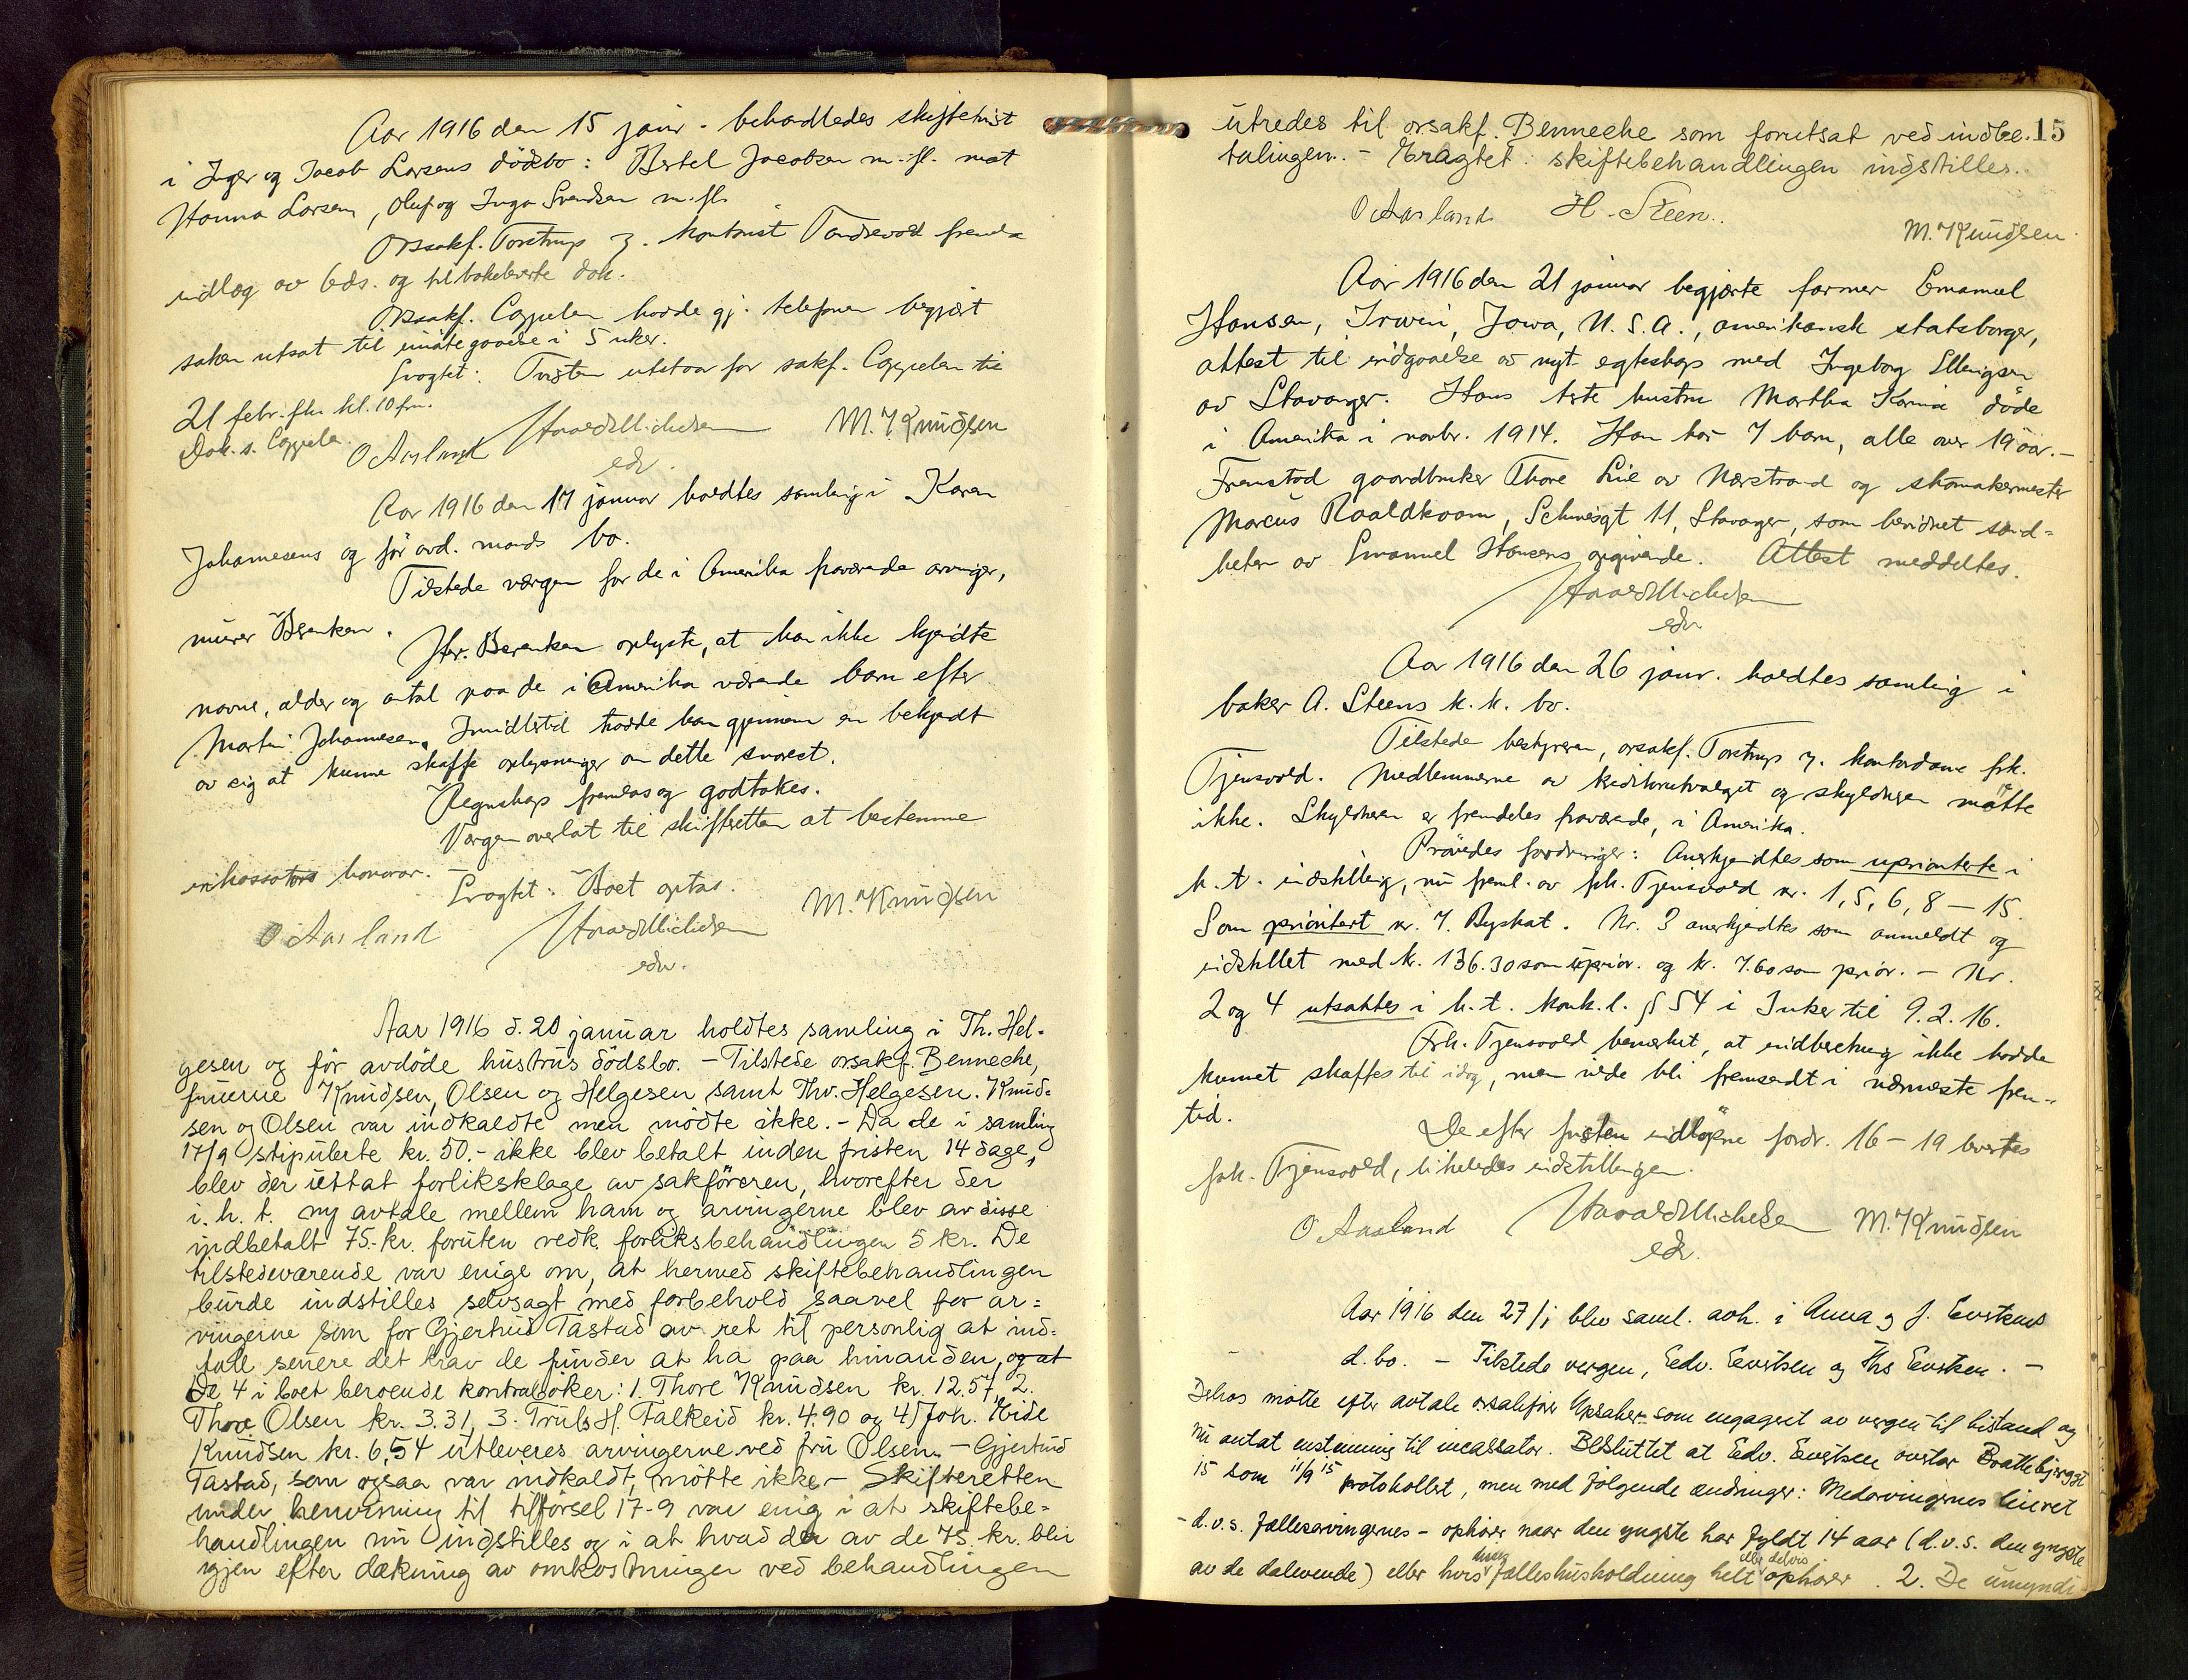 Aar 1916 den 15 janr. behandledes skiftetvist
i Inger og Jacob Larsens dödsbo: Bertel Jacobsen m.fl. mot
Hanna Larsen, Oluf og Inga Svendsen m.fl.
Orsakf. Torstrup v. kontorist Tandrevold fremla
indlæg av 6ds. og tilbakeleverte dok.
Orsakf. Cappelen hadde gj. telefonen begjært
saken utsat til imötegaaelse i 5 uker.
Eragtet: Tvisten utstaar for sakf. Cappelen til
21 febr. fler kl. 10 fm.
Dok. s. Cappelen.
O Aasland Harald Michelsen M. Knudsen
edv.
Aar 1916 den 17 januar holdtes samling i Karen
Johannesens og før avd. mands bo.
Tilstede værgen for de i Amerika fraværende arvinger,
murer Berentsen.
Hr. Berentsen oplyste, at han ikke kjendte
navne, alder og antal paa de i Amerika værende barn efter
Martin Johannesen. Imidlertid trodde han gjennem en bekjendt
av sig at kunne skaffe oplysninger om dette snarest.
Regnskap fremlas og godtokes.
Værgen overlot til skifteretten at bestemme
inkassators honorar.
Eragtet: Boet optas.
O Aasland Harald Michelsen M. Knudsen
edv.
Aar 1916 d. 20 januar holdtes samling i Th. Hel-
gesen og før avdöde hustrus dödsbo. - Tilstede orsakf. Benneche,
fruerne Knudsen, Olsen og Helgesen samt Thv. Helgesen. Knud-
sen og Olsen var indkaldte men mödte ikke. - Da de i samling
17/9 stipulerte kr. 50.- ikke blev betalt inden fristen 14 dage,
blev der uttat forliksklage av sakföreren, hvorefter der
i. h. t. ny avtale mellem ham og arvingerne blev av disse
indbetalt 75.- kr. foruten vedk. forliksbehandlingen 5 kr. De
tilstedeværende var enige om, at hermed skiftebehandlingen
burde indstilles selvsagt med forbehold saavel for ar=
vingerne som for Gjertrud Tastad av ret til personlig at ind-
tale senere det krav de finder at ha paa hinanden, og at
De 4 i boet beroende kontraböker: 1. Thore Knudsen kr. 12.57, 2.
Thore Olsen kr. 3.31, 3. Truls H. Falkeid kr. 4.90 og 4) Joh. Eide
Knudsen kr. 6,54 utleveres arvingerne ved fru Olsen. - Gjertrud
Tastad, som ogsaa var indkaldt, mötte ikke. - Skifteretten
under henvisning til tilförsel 17-9 var enig i at skiftebe=
handlingen nu indstilles og i at hvad der av de 75. kr. blir
igjen efter dækning av omkostninger ved behandlingen
15
utredes til orsakf. Benneche som forutsat ved indbe-
talingen. - Eragtet: skiftebehandlingen indstilles.
O Aasland H. Steen. M. Knudsen
Aar 1916 den 21 januar begjærte farmer Emanuel
Hansen, Irwin, Jowa, U. S. A., amerikansk statsborger,
attest til indgaaelse av nyt egteskap med Ingeborg Ellingsen
av Stavanger. Hans første hustru Martha Karina døde
i Amerika i novbr. 1914. Han har 7 barn, alle over 19 aar. -
Fremstod gaardbruker Thore Lie av Nærstrand og skomakermester
Marcus Raaldkvam, Schweigt 11, Stavanger, som bevidnet sand-
heten av Emanuel Hansens opgivende. Attest meddeltes.
Harald Michelsen
edv.
Aar 1916 den 26 janr. holdtes samling i
baker A. Steens k. k. bo.
Tilstede bestyreren, orsakf. Torstrup v. kontordame frk.
Tjensvold. Medlemmerne av kreditorutvalget og skyldneren mötte
ikke. Skyldneren er fremdeles fraværende, i Amerika.
Prövedes fordringer: Anerkjendtes som uprioriterte i
h. t. indstilling, nu freml. av frk. Tjensvold nr. 1, 5, 6, 8 - 15.
Som prioritert nr. 7. Byskat. Nr. 3 anerkjendtes som anmeldt og
indstillet med kr. 136.30 som uprior. og kr. 7.60 som prior. - Nr.
2 og 4 utsattes i h. t. konk. l. § 54 i 2 uker til 9.2.16.
Frk. Tjensvold bemerket, at indberetning ikke hadde
kunnet skaffes til idag, men vilde bli fremsendt i nærmeste frem-
tid.
De efter fristen indløpne fordr. 16 - 19 leverTes
frk. Tjensvold, likeledes indstillingen.
O Aasland Harald Michelsen M. Knudsen
edv.
Aar 1916 den 27/1 blev saml. avh. i Anna og J. Evertsens
d. bo. - Tilstede vergen, Edv. Evertsen og Ths Evertsen. -
Dehos mötte efter avtale orsakfører Opsaker som engagert av vergen til bistand og
nu antat enstemmig til incassator. Besluttet at Edv. Evertsen overtar Brattebjerggt
15 som 11/9 15 protokollert, men med følgende endringer: Medarvingernes livret
- d.v.s. fællesarvingernes - ophører naar den yngste har fyldt 14 aar (d.v.s. den yngste
av de dalevende) eller hvis fælleshusholdning helt eller delvis ophører. 2. De umyndi-